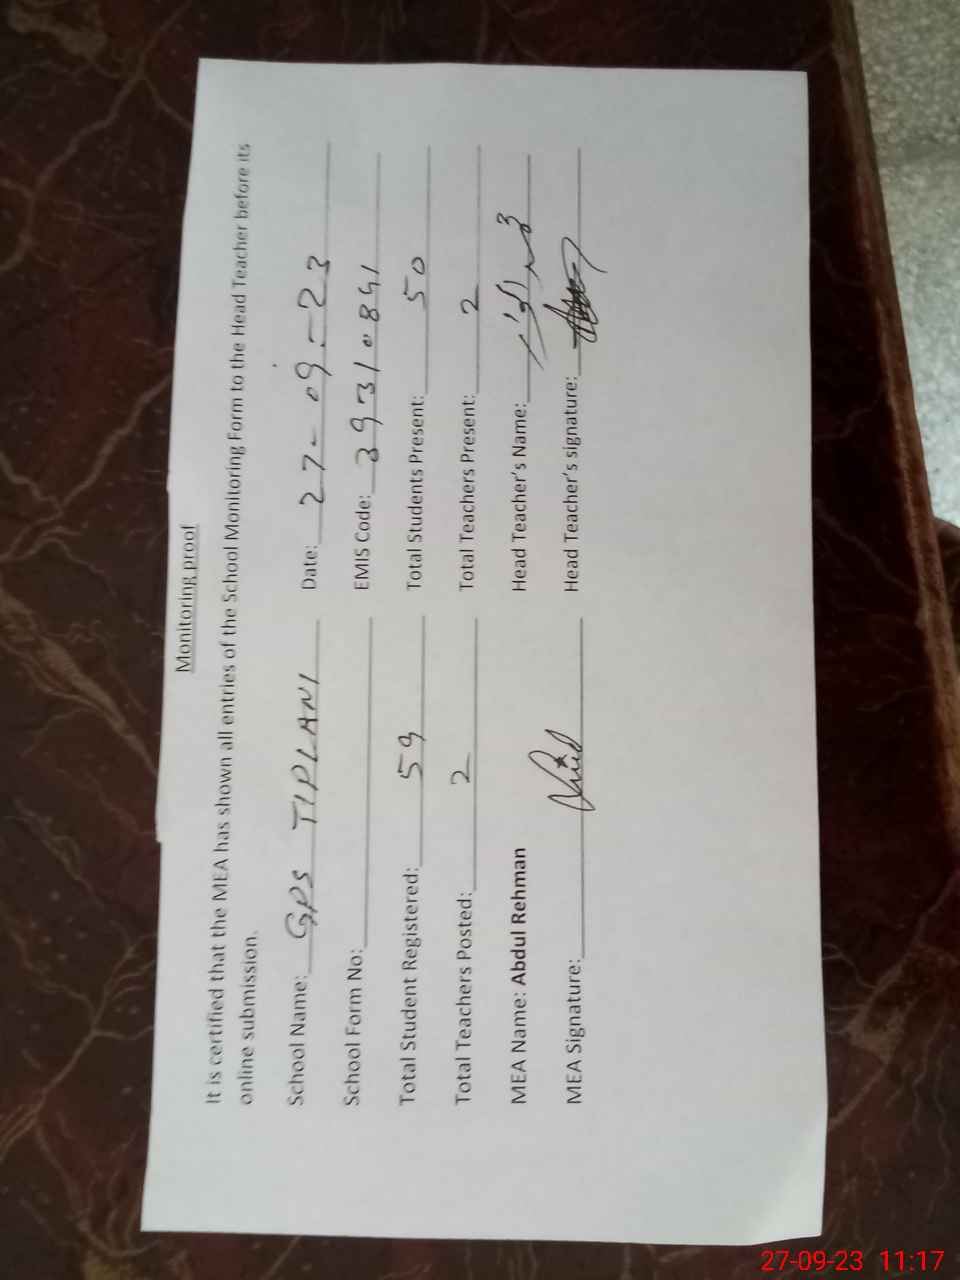 Monitoring proof
It is certified that the MEA has shown all entries of the School Monitoring Form to the Head Teacher before its
online submission.
School Name: GPS TIPLANI Date: 27-09-23
School Form No: EMIS Code: 39310841
Total Student Registered: 59 Total Students Present: 50
Total Teachers Posted: 2 Total Teachers Present: 2
MEA Name: Abdul Rehman Head Teacher's Name:
MEA Signature: Head Teacher's signature:
27-09-23 11:17